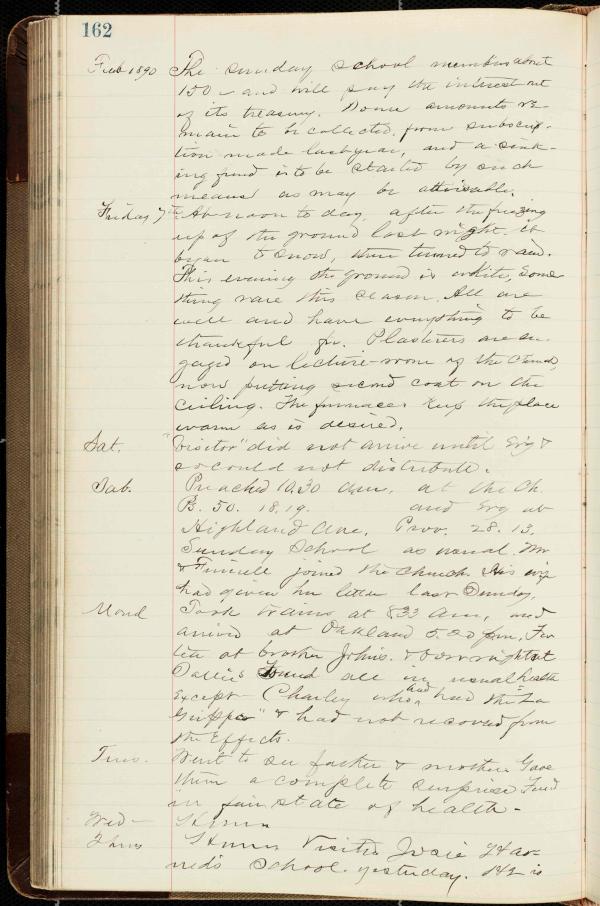 162
Feb 1890 The sunday school members about
150 - and will pay the interest out
of its treasury. Some amounts re-
main to be collected from subscrip-
tion made last year, and a sink-
ing fund is to be started by such
means as may be advisable.
Friday 7th At noon to day, after the freezing
up of the ground last night, it
began to snow, then turned to rain.
This evening the ground is white, some
thing rare this season. All are
well and have everything to be
thankful for. Plasterers are en-
gaged on lecture-room of the Church,
now putting second coat on the
ceiling. The furnaces keep the place
warm as is desired.
Sat. "Visitor" did not arrive until Ev'g &
so could not distribute.
Sab. Preached 10.30 a.m. at the Ch.
Ps. 50. 18.19. and Ev'g at
Highland Ave. Prov. 28. 13.
Sunday School as usual. Mr
joined the church. His wife
had given her letter last Sunday.
Mond Took train at 8 33 a.m. and
arrived at Oakland 5.20 p.m. For
tea at brother John's. & over night at
Sallie's found all in usual health
except Charley who had had the "La
Grippe" & had not recovered from
the effects.
Tues. Went to see father & mother. Gave
them a complete surprise. Find
in fair state of health -
Wed -
Thurs Visited Josie Har-
ned's School yesterday. He is